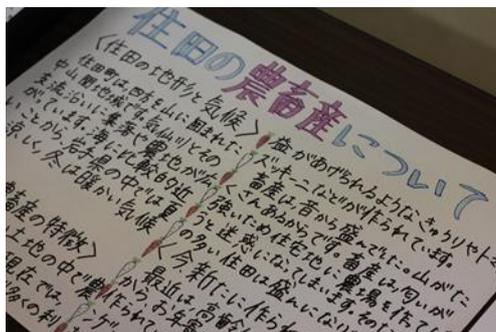 住田の農畜産について
〈住田の地形と気候〉
住田町は四方を山に囲まれた
中山間地域です。気仙川とその
支流沿いに集落や農地が広
がっています。海に比較的近
いことから、岩手県の中では夏
涼しく、冬は暖かい気候
畜産の特徴〉
土地の中で農
現在では、
益があげられるようなきゅうりやトマ
ズッキーニなどが作られています。
畜産は昔から盛んでした。山がた
くさんあるからです。畜産は、匂いが
強いため住宅地に農場を作
ると迷惑になってしまいます。
の多い住田は盛んになり
〈今、新たに作ら
最近は、高齢
からお年
作られて